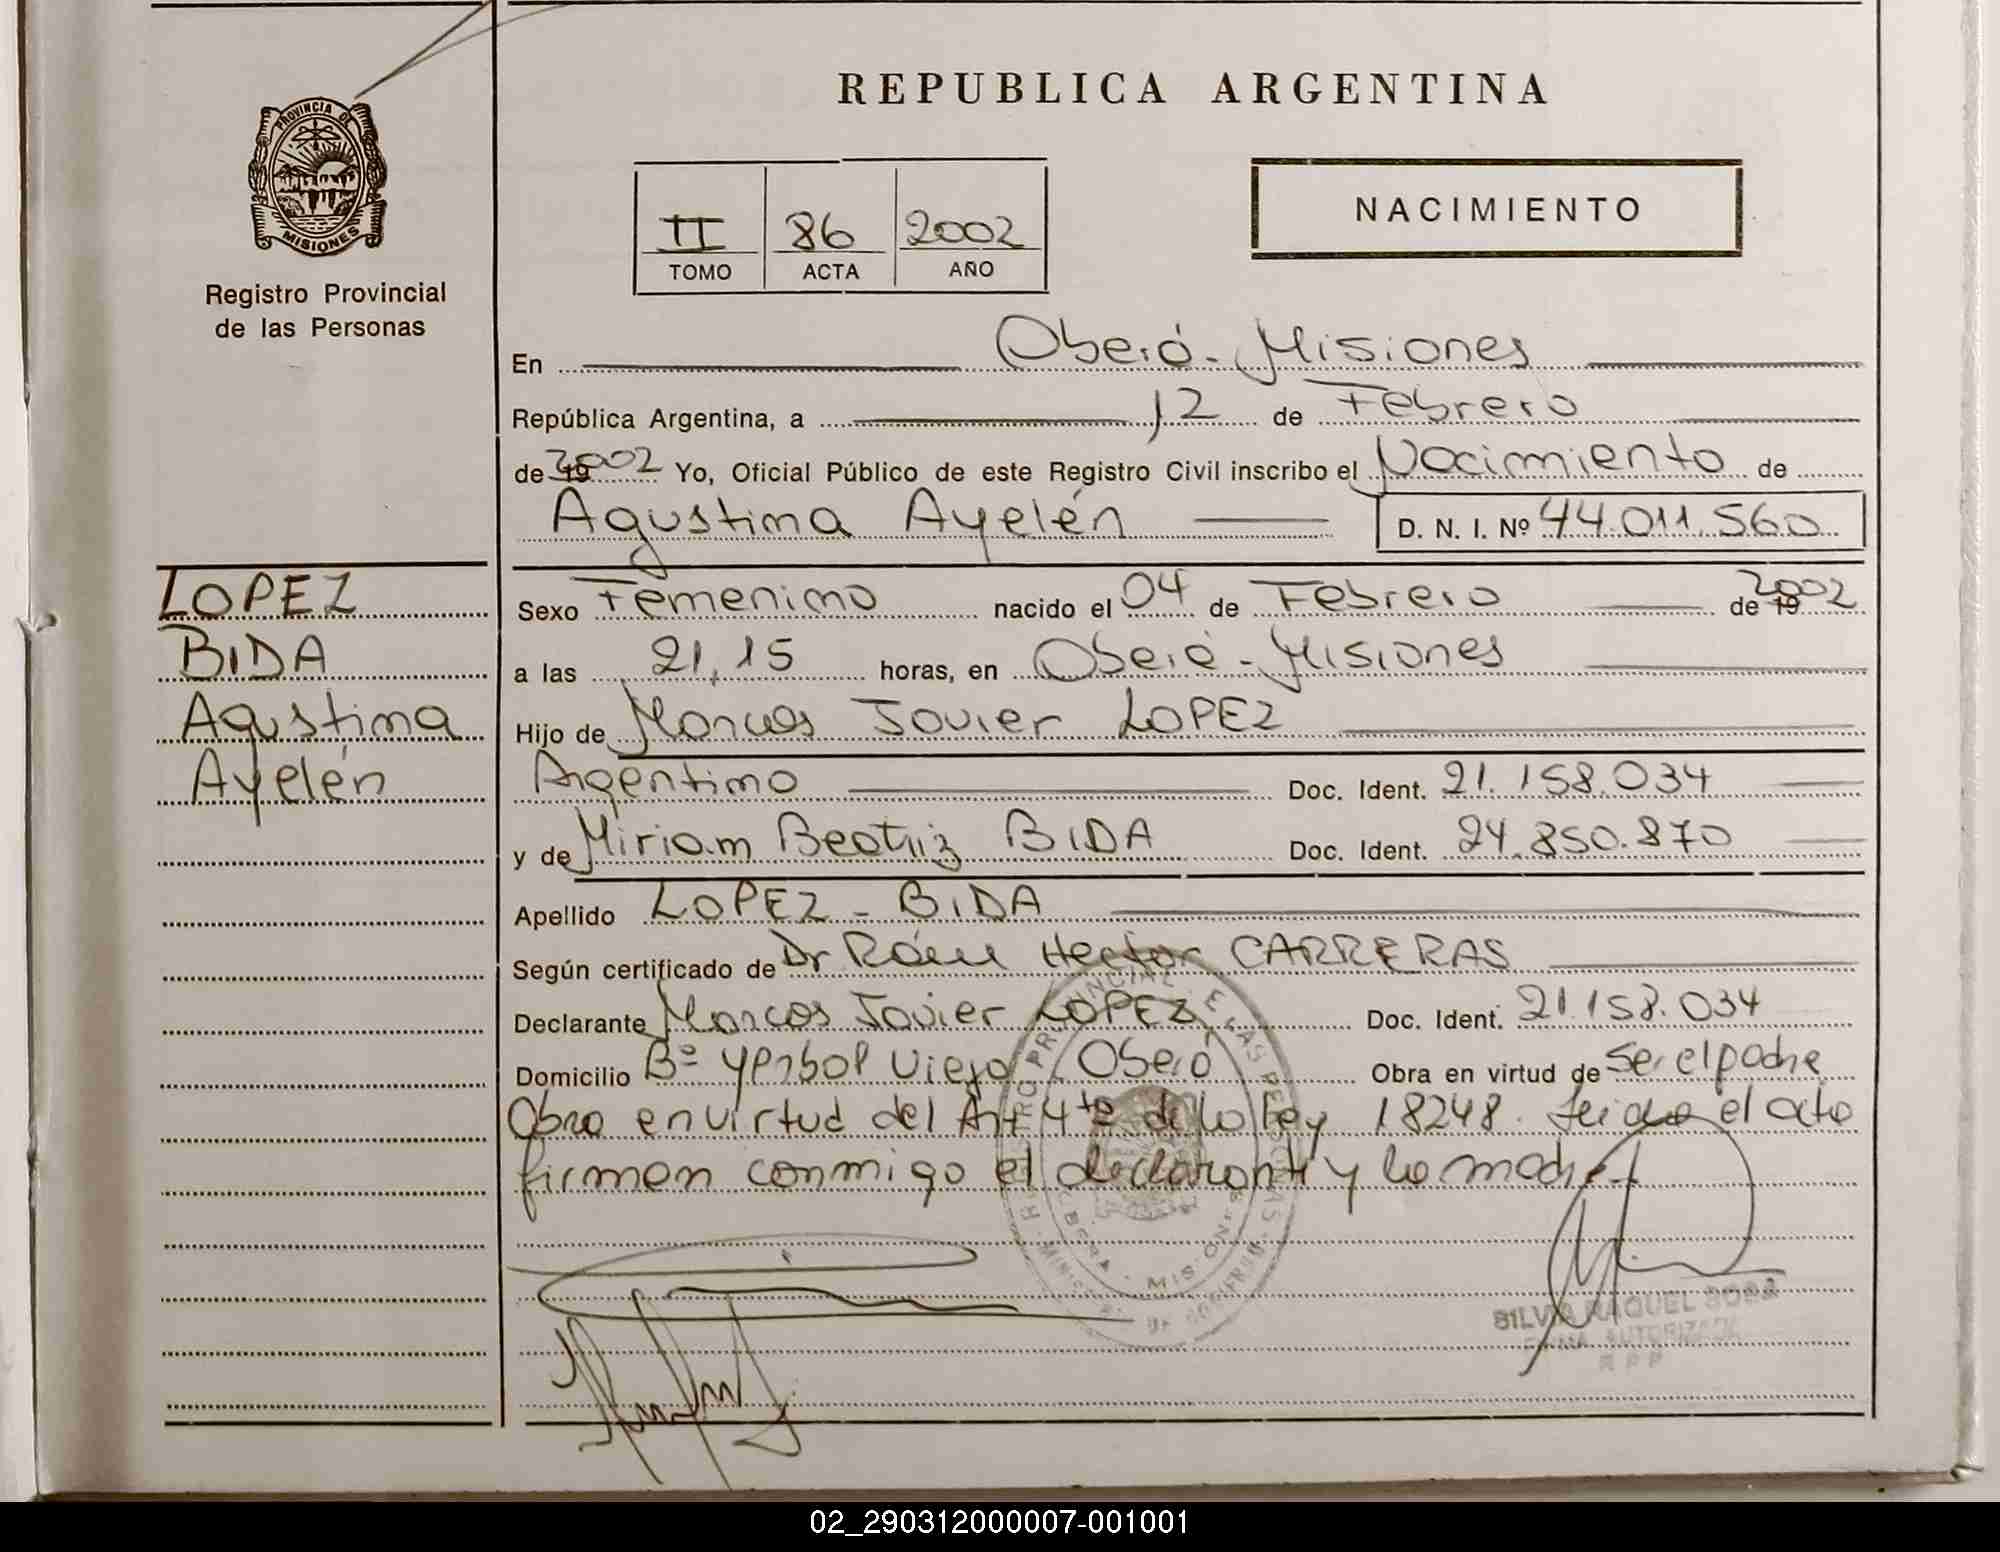 REPUBLICA ARGENTINA
PROVINCIA DE
MISIONES
Registro Provincial
de las Personas
II 86 2002
TOMO ACTA AÑO
NACIMIENTO
En Oberá - Misiones
República Argentina, a 12 de Febrero
de 19 2002 Yo, Oficial Público de este Registro Civil inscribo el Nacimiento de
Agustina Ayelén D. N. I. Nº 44.011.560
LOPEZ
BIDA
Agustina
Ayelén
Sexo Femenino nacido el 04 de Febrero de 19 2002
a las 21,15 horas, en Oberá - Misiones
Hijo de Marcos Javier LOPEZ
Argentino Doc. Ident. 21.158.034
y de Miriam Beatriz BIDA Doc. Ident. 24.850.870
Apellido LOPEZ - BIDA
Según certificado de Dr Raúl Hector CARRERAS
Declarante Marcos Javier LOPEZ Doc. Ident. 21.158.034
Domicilio Bº Viejo Oberá Obra en virtud de ser el padre
Obra en virtud del Art 4to de la Ley 18248. Leida el acta
firman conmigo el declarante y la madre
MISIONES
SILVIA RAQUEL
FIRMA AUTORIZADA
02_290312000007-001001